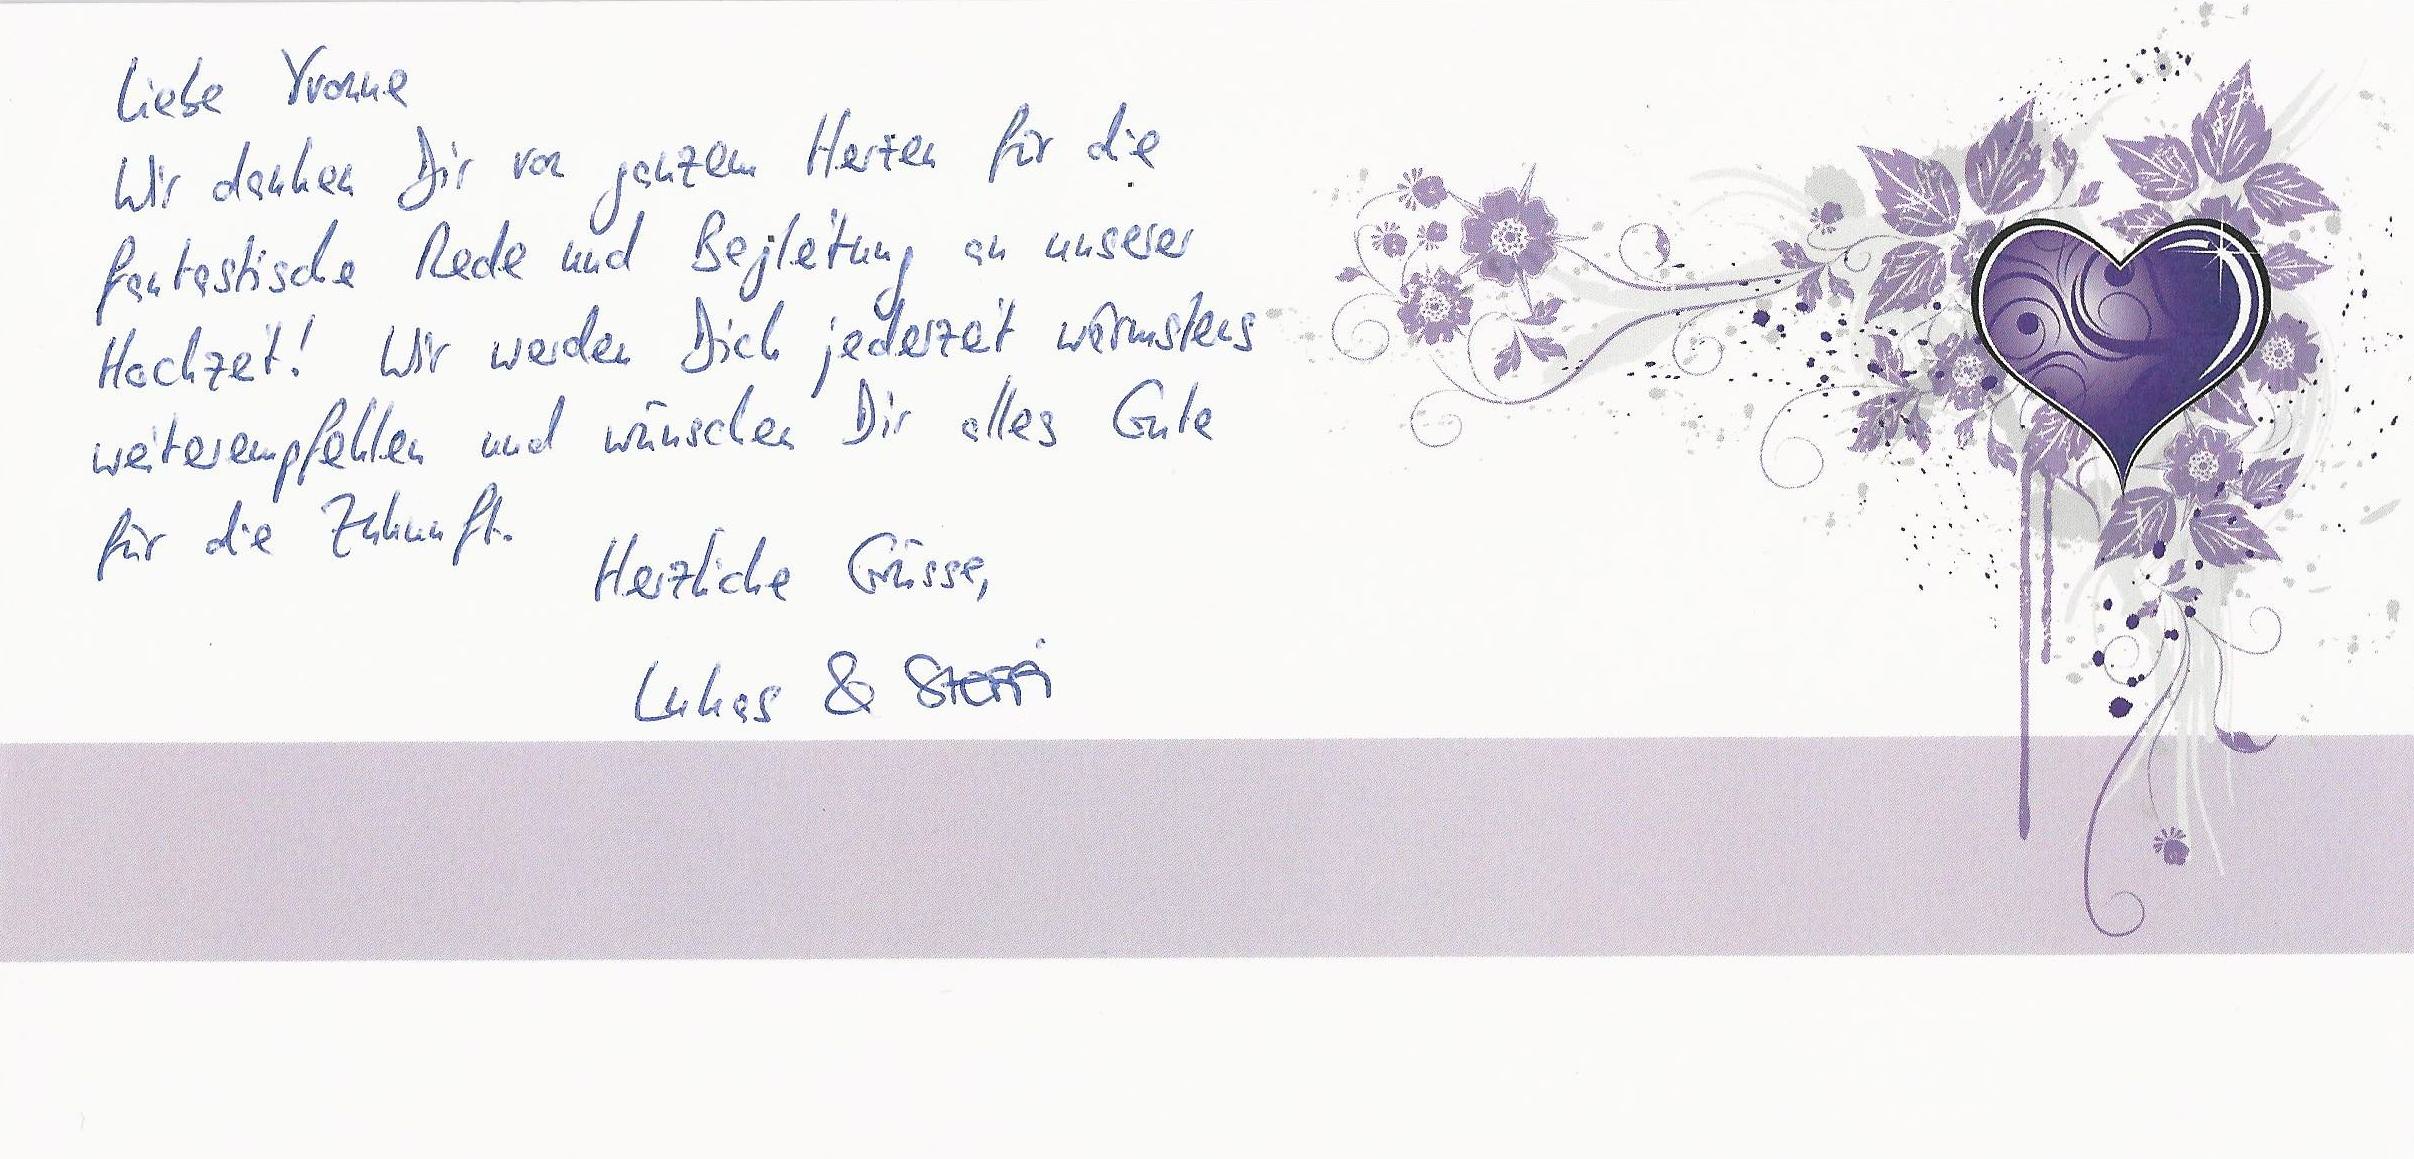 Liebe Yvonne
Wir danken Dir von ganzem Herzen für die
fantastische Rede und Begleitung an unserer
Hochzeit! Wir werden Dich jederzeit wärmstens
weiterempfehlen und wünschen Dir alles Gute
für die Zukunft.
Herzliche Grüsse,
Lukas & Steffi